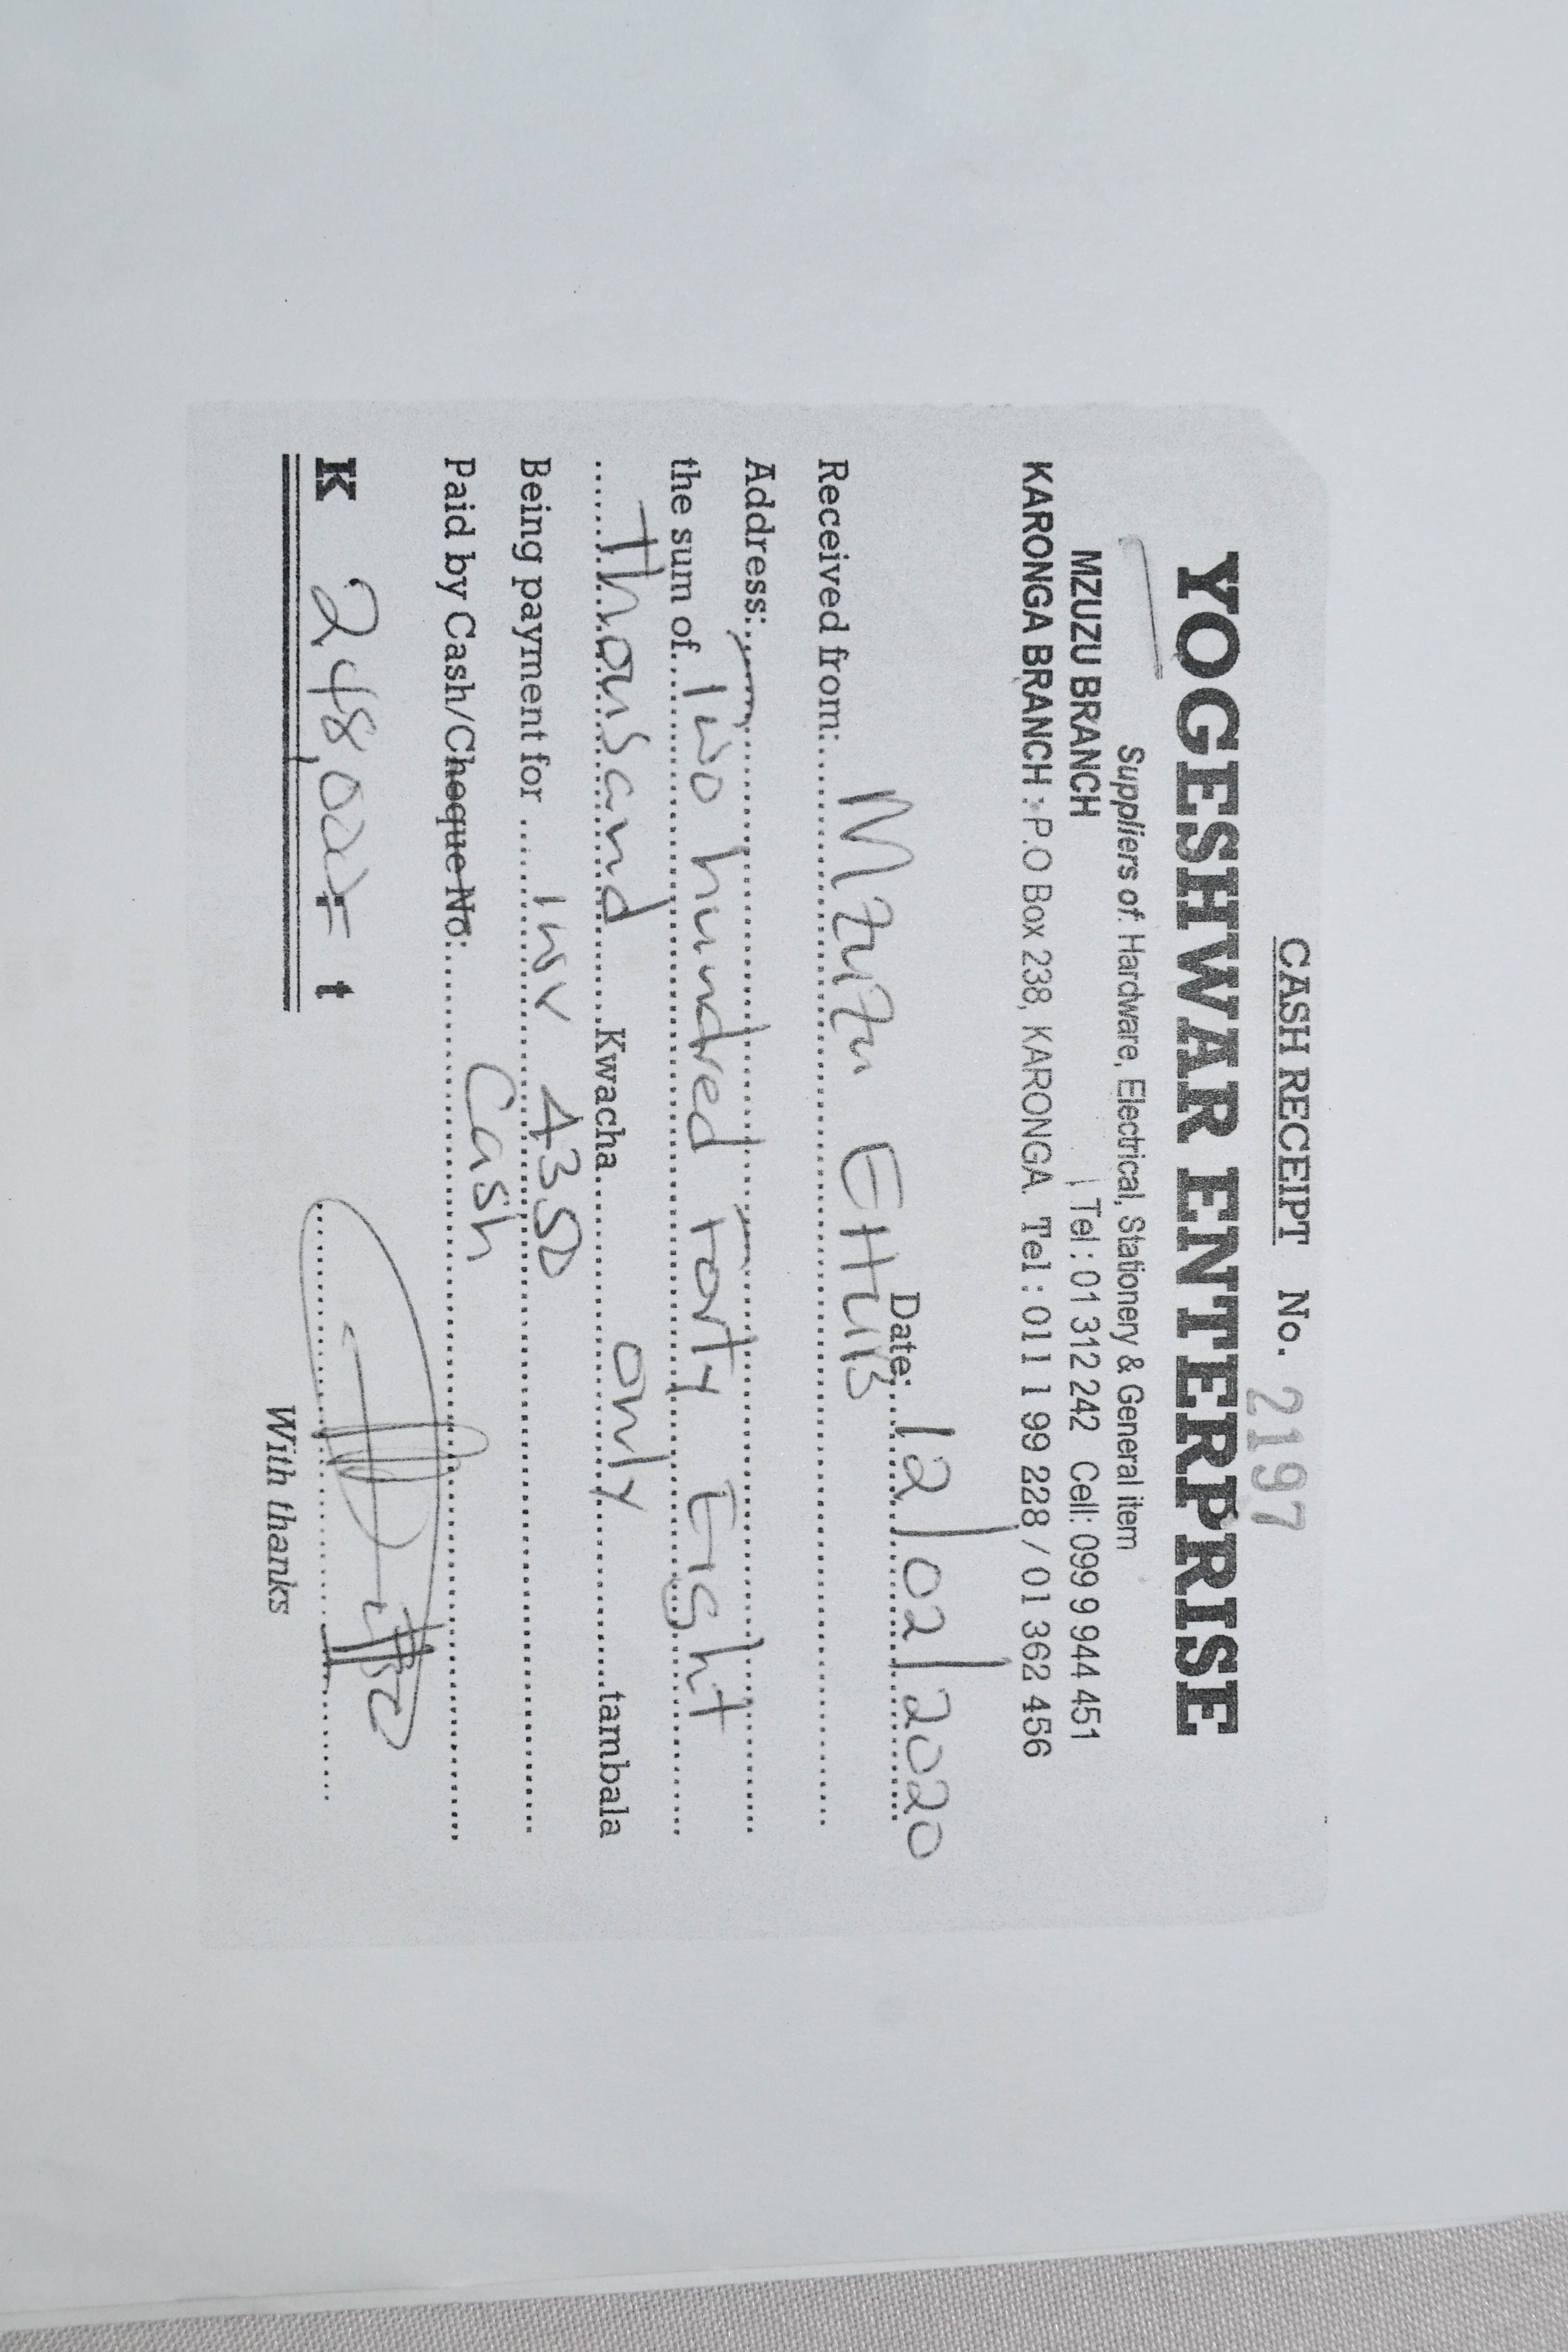 CASH RECEIPT No. 2197
YOGESHWAR ENTERPRISE
Suppliers of: Hardware, Electrical, Stationery & General item
MZUZU BRANCH Tel : 01 312 242 Cell: 099 9 944 451
KARONGA BRANCH : P.O Box 238, KARONGA. Tel : 011 1 99 228 / 01 362 456
Date: 12/02/2020
Received from: Mzuzu EHUB
Address:
the sum of Two hundred Forty Eight
Thousand Kwacha only tambala
Being payment for Inv 4350
Paid by Cash/Cheque No: Cash
K 248,00 = t
With thanks